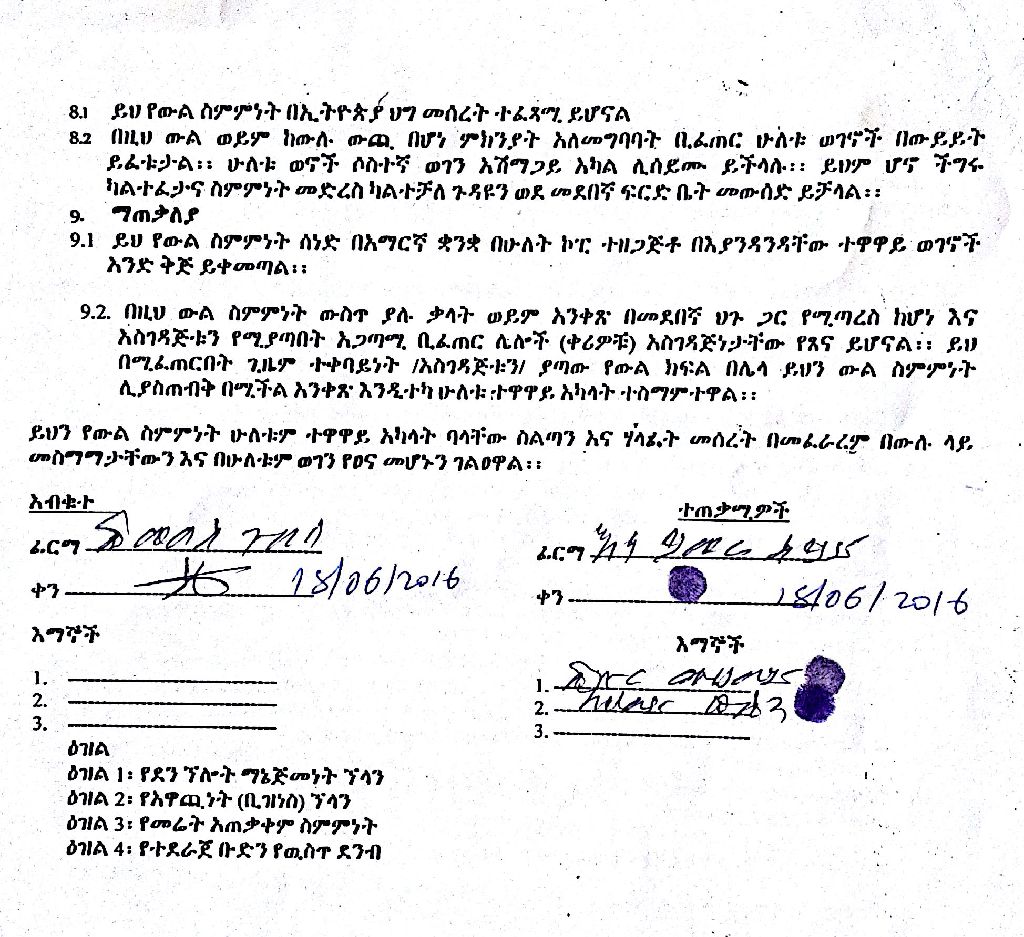 8.1 ይህ የውል ስምምነት በኢትዮጵያ ህግ መሰረት ተፈጻሚ ይሆናል
8.2 በዚህ ውል ወይም ከውሉ ውጪ በሆነ ምክንያት አለመግባባት ቢፈጠር ሁለቱ ወገኖች በውይይት
ይፈቱታል፡፡ ሁለቱ ወኖች ሶስተኛ ወገን አሸማጋይ አካል ሊሰይሙ ይችላሉ፡፡ ይህም ሆኖ ችግሩ
ካልተፈታና ስምምነት መድረስ ካልተቻለ ጉዳዩን ወደ መደበኛ ፍርድ ቤት መውሰድ ይቻላል፡፡
9. ማጠቃለያ
9.1 ይህ የውል ስምምነት ሰነድ በአማርኛ ቋንቋ በሁለት ኮፒ ተዘጋጅቶ በእያንዳንዳቸው ተዋዋይ ወገኖች
አንድ ቅጅ ይቀመጣል፡፡
9.2. በዚህ ውል ስምምነት ውስጥ ያሉ ቃላት ወይም አንቀጽ በመደበኛ ህጉ ጋር የሚጣረስ ከሆነ እና
አስገዳጅቱን የሚያጣበት አጋጣሚ ቢፈጠር ሌሎች (ቀሪዎቹ) አስገዳጅነታቸው የጸና ይሆናል፡፡ ይህ
በሚፈጠርበት ጊዜም ተቀባይነት /አስገዳጅቱን/ ያጣው የውል ክፍል በሌላ ይህን ውል ስምምነት
ሊያስጠብቅ በሚችል አንቀጽ እንዲተካ ሁለቱ ተዋዋይ አካላት ተስማምተዋል፡፡
ይህን የውል ስምምነት ሁለቱም ተዋዋይ አካላት ባላቸው ስልጣን እና ሃላፊት መሰረት በመፈራረም በውሉ ላይ
መስማማታቸውን እና በሁለቱም ወገን የፀና መሆኑን ገልፀዋል፡፡
አብቁተ
ተጠቃሚዎች
ፊርማ
ፊርማ
ቀን 18/06/2016
ቀን 18/06/2016
እማኞች
እማኞች
1.
2.
3.
1.
2.
3.
ዕዝል
ዕዝል 1፡ የደን ፕሎት ማኔጅመነት ፕላን
ዕዝል 2፡ የአዋጪነት (ቢዝነስ) ፕላን
ዕዝል 3፡ የመሬት አጠቃቀም ስምምነት
ዕዝል 4፡ የተደራጀ ቡድን የዉስጥ ደንብ